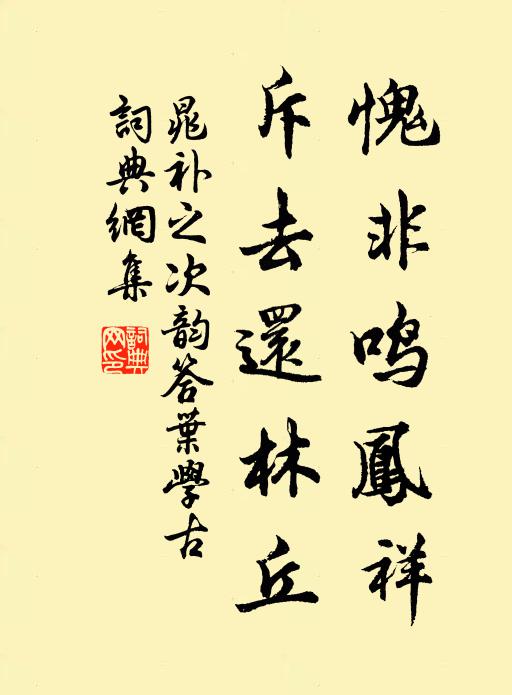 愧非鸣鳳祥
斥去還林丘
晁补之次韵答葉學古
詞典網集
詞典网印